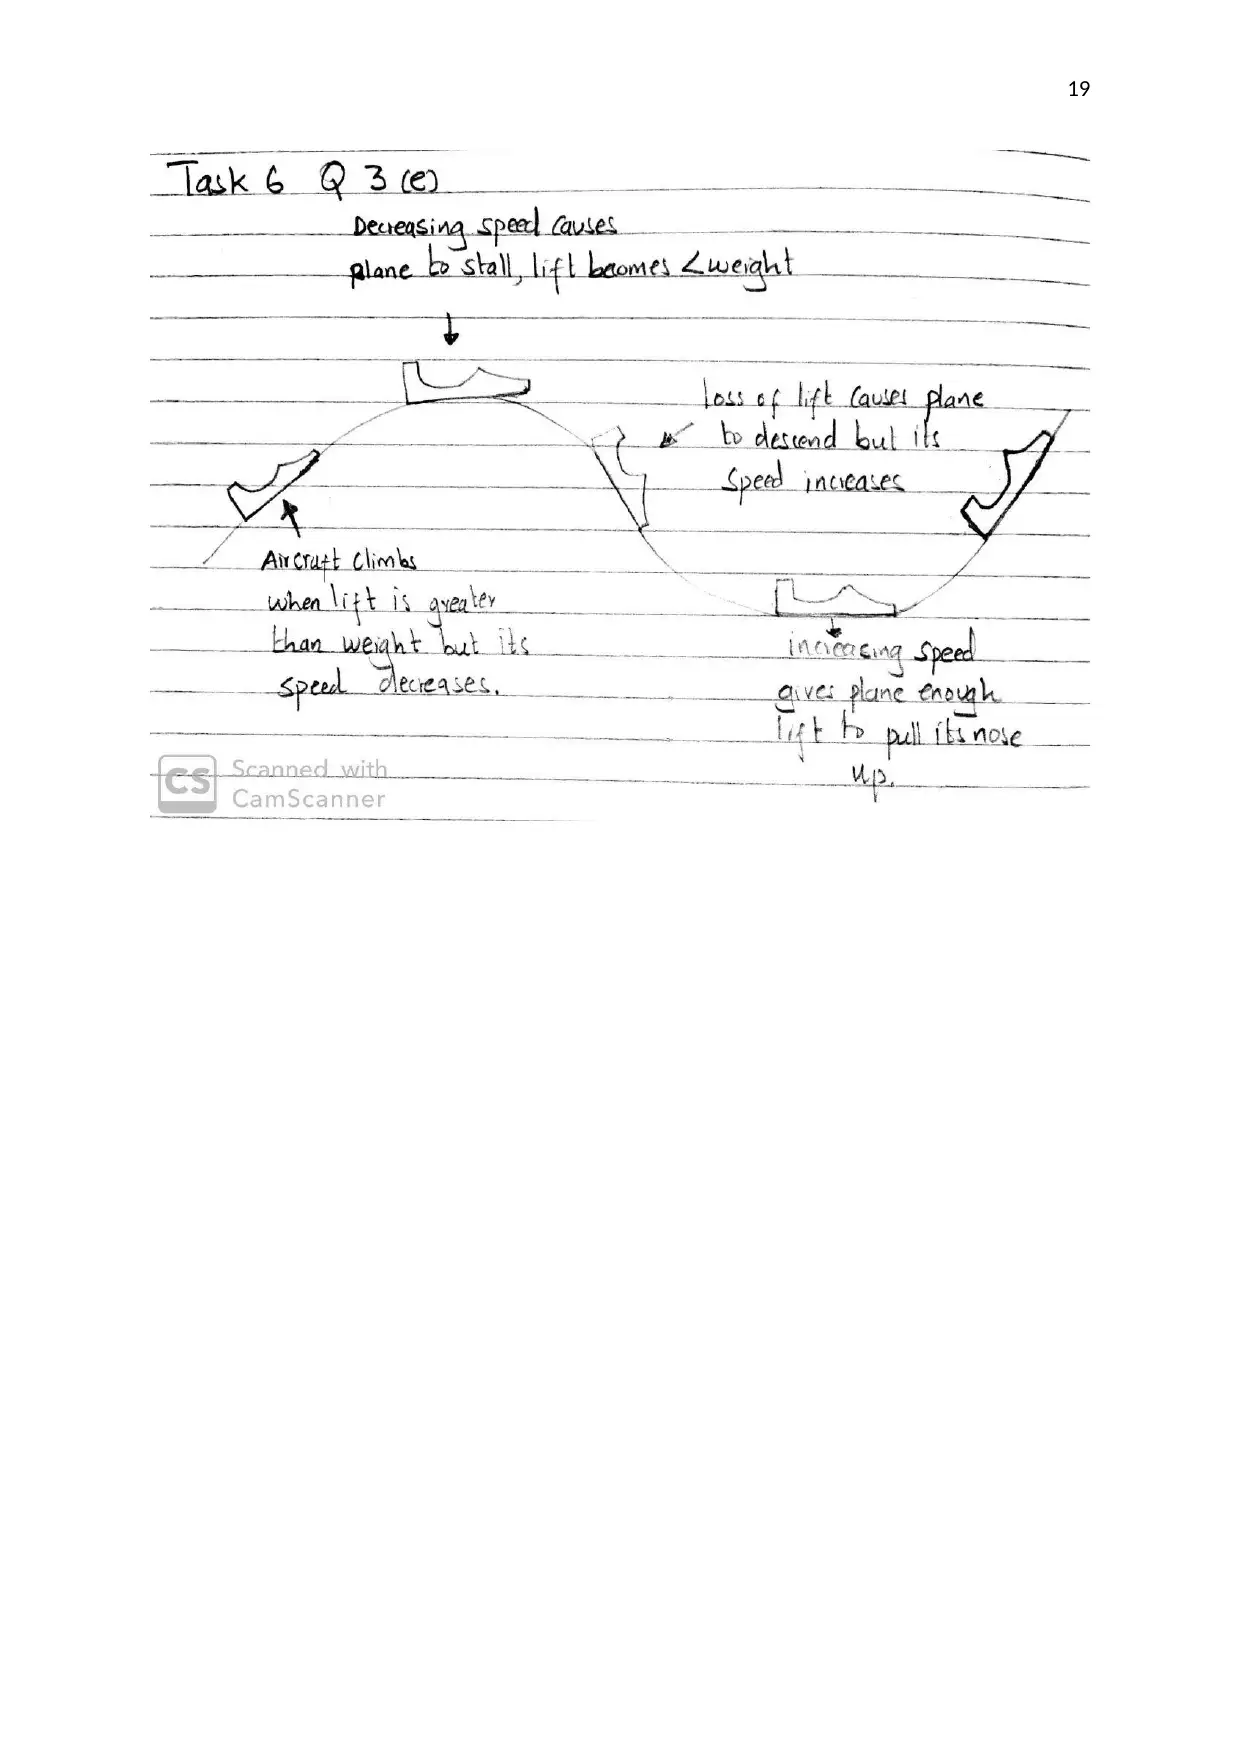 19
Task 6 Q 3 (e)
Decreasing speed causes
plane to stall, lift becomes < weight
loss of lift causes plane
to descend but its
speed increases
Aircraft climbs
when lift is greater
than weight but its
speed decreases.
increasing speed
gives plane enough
lift to pull its nose
up.
CS Scanned with
CamScanner